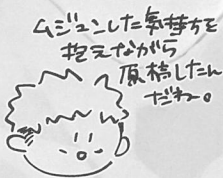 ムジュンした気持ちを
抱えながら
原稿したん
だね。